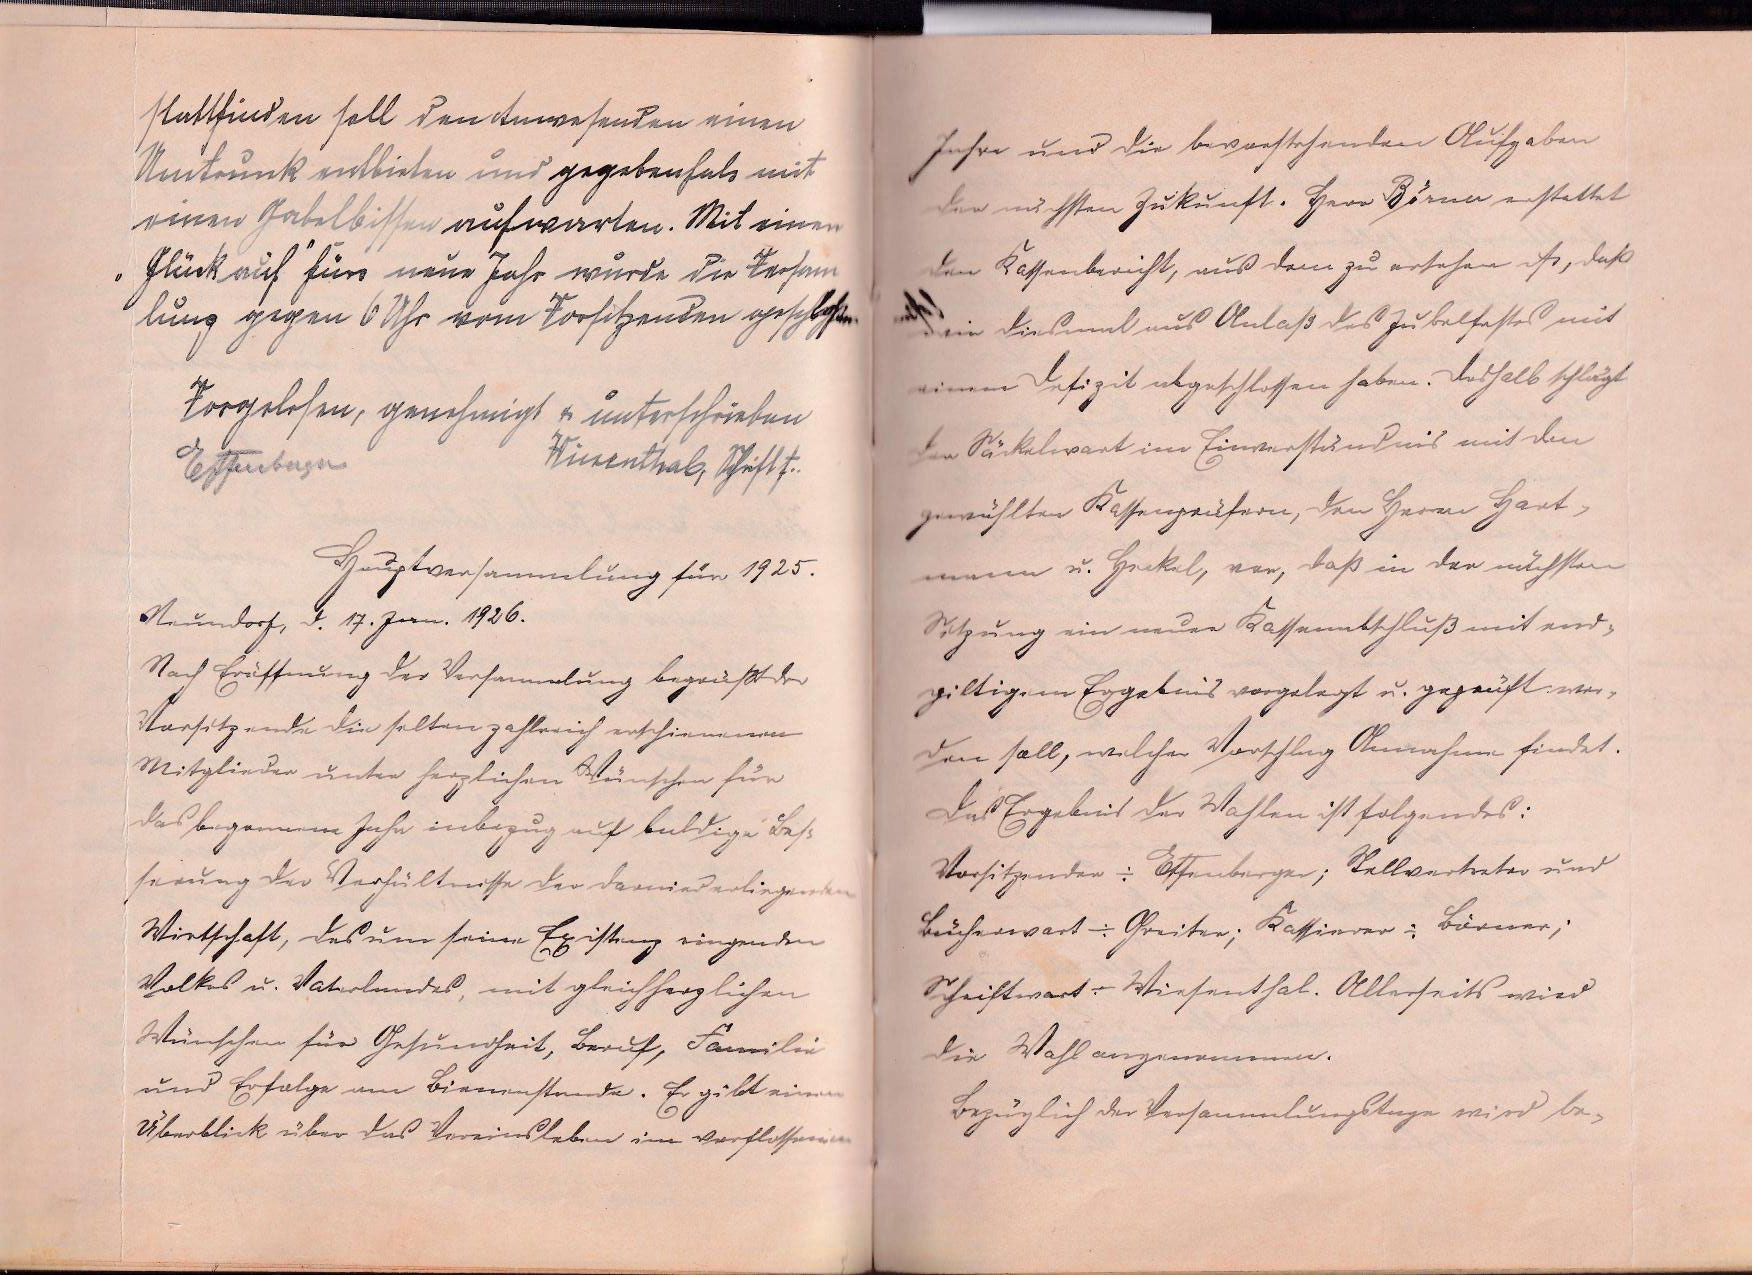 stattfinden soll den Anwesenden einen
Umtrunk entbieten und gegebenfals mit
einen Gabelbissen aufwarten. Mit einen
"Glück auf" fürs neue Jahr wurde die Versam
lung gegen 6 Uhr vom Vorsitzenden geschlossen
Vorgelesen, genehmigt & unterschrieben
Effenberger Wiesenthal, Schriftf.
Hauptversammlung für 1925.
Neundorf, d. 17. Jan. 1926.
Nach Eröffnung der Versammlung begrüßt der
Vorsitzende die selten zahlreich erschienenen
Mitglieder unter herzlichen Wünschen für
das begonnene Jahr inbezug auf baldige Bes-
serung der Verhältnisse der darniederliegenden
Wirtschaft, des um seine Existenz ringenden
Volkes u. Vaterlandes, mit gleichherzlichen
Wünschen für Gesundheit, Beruf, Familie
und Erfolge am Bienenstande. Er gibt einen
Überblick über das Vereinsleben im verflossenen
Jahre und die bevorstehenden Aufgaben
der nächsten Zukunft. Herr Börner erstattet
den Kassenbericht, aus dem zu ersehen ist, daß
wir diesmal aus Anlaß des Jubelfestes mit
einem Defizit abgeschlossen haben. Deshalb schlägt
der Säckelwart im Einverständnis mit den
gewählten Kassenprüfern, den Herrn Hart-
mann u. Henkel, vor, daß in der nächsten
Sitzung ein neuer Kassenabschluß mit end-
giltigem Ergebnis vorgelegt u. geprüft wer-
den soll, welcher Vorschlag Annahme findet.
Das Ergebnis der Wahlen ist folgendes:
Vorsitzender ÷ Effenberger; Stellvertreter und
Bücherwart ÷ Greiter; Kassierer ÷ Börner;
Schriftwart ÷ Wiesenthal. Allerseits wird
die Wahl angenommen.
Bezüglich der Versammlungstage wird be-